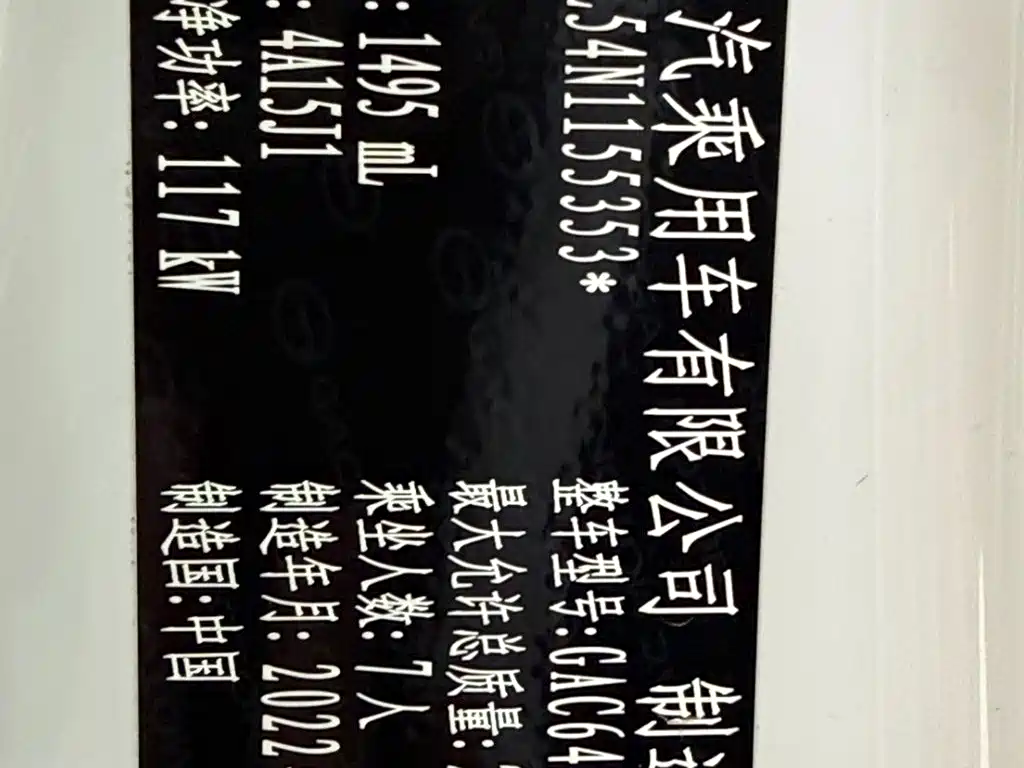 汽乘用车有限公司 制造
54N115353* 整车型号:GAC64
最大允许总质量:
: 1495 mL 乘坐人数: 7人
: 4A15J1 制造年月: 2022
净功率: 117 kW 制造国: 中国